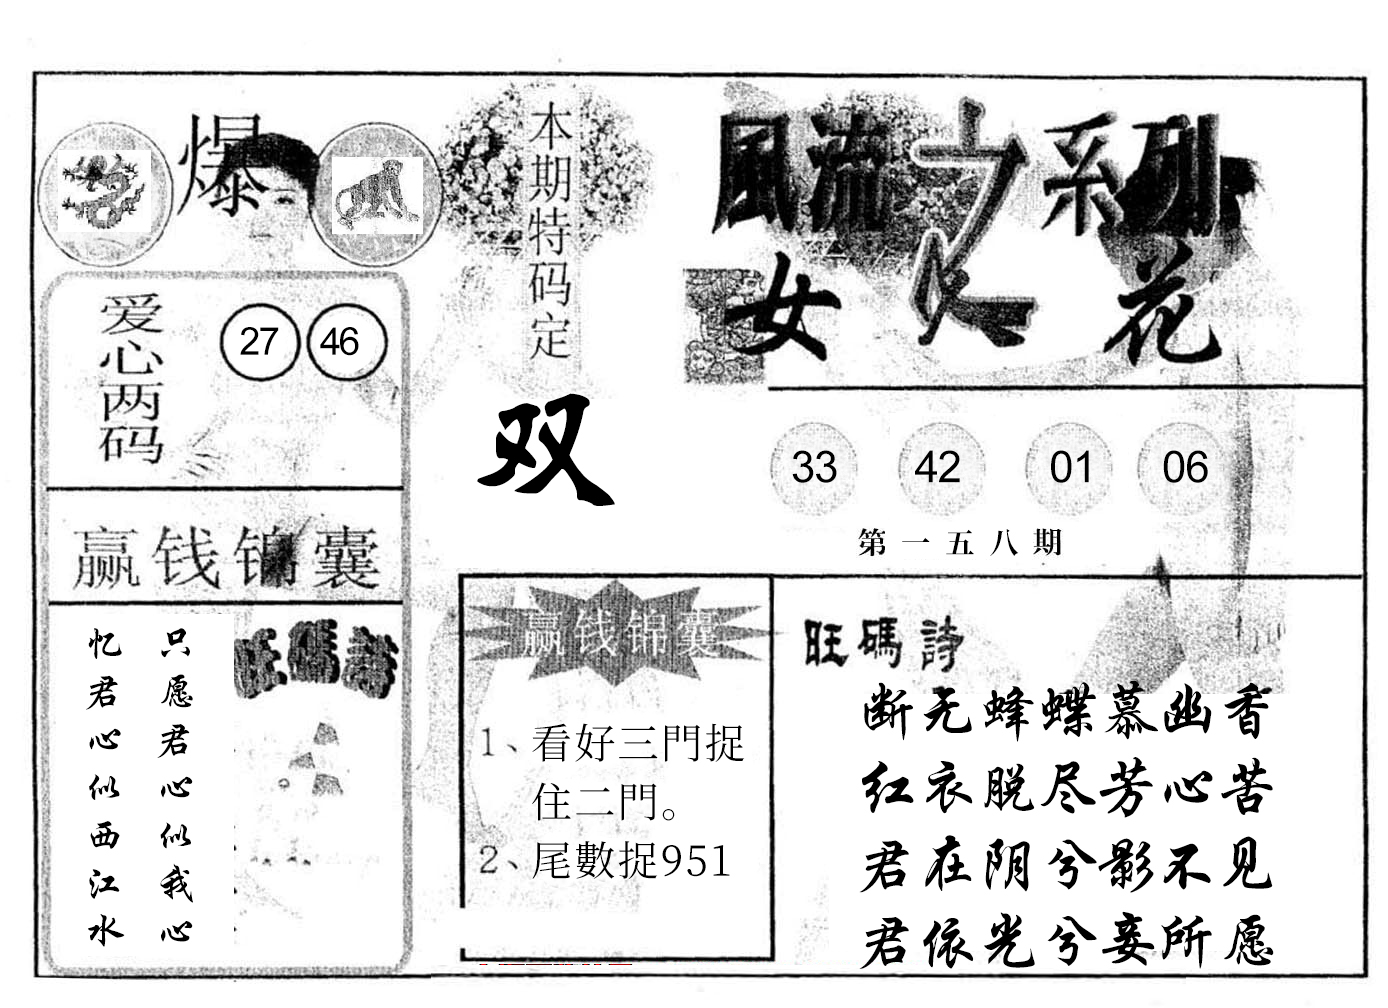 爆
本期特码定
双
風流之系列
女人花
爱心两码
27 46
33 42 01 06
第一五八期
赢钱锦囊
旺碼詩
只愿君心似我心
忆君心似西江水
赢钱锦囊
1、看好三門捉
住二門。
2、尾數捉951
旺碼詩
断无蜂蝶慕幽香
红衣脱尽芳心苦
君在阴兮影不见
君依光兮妾所愿